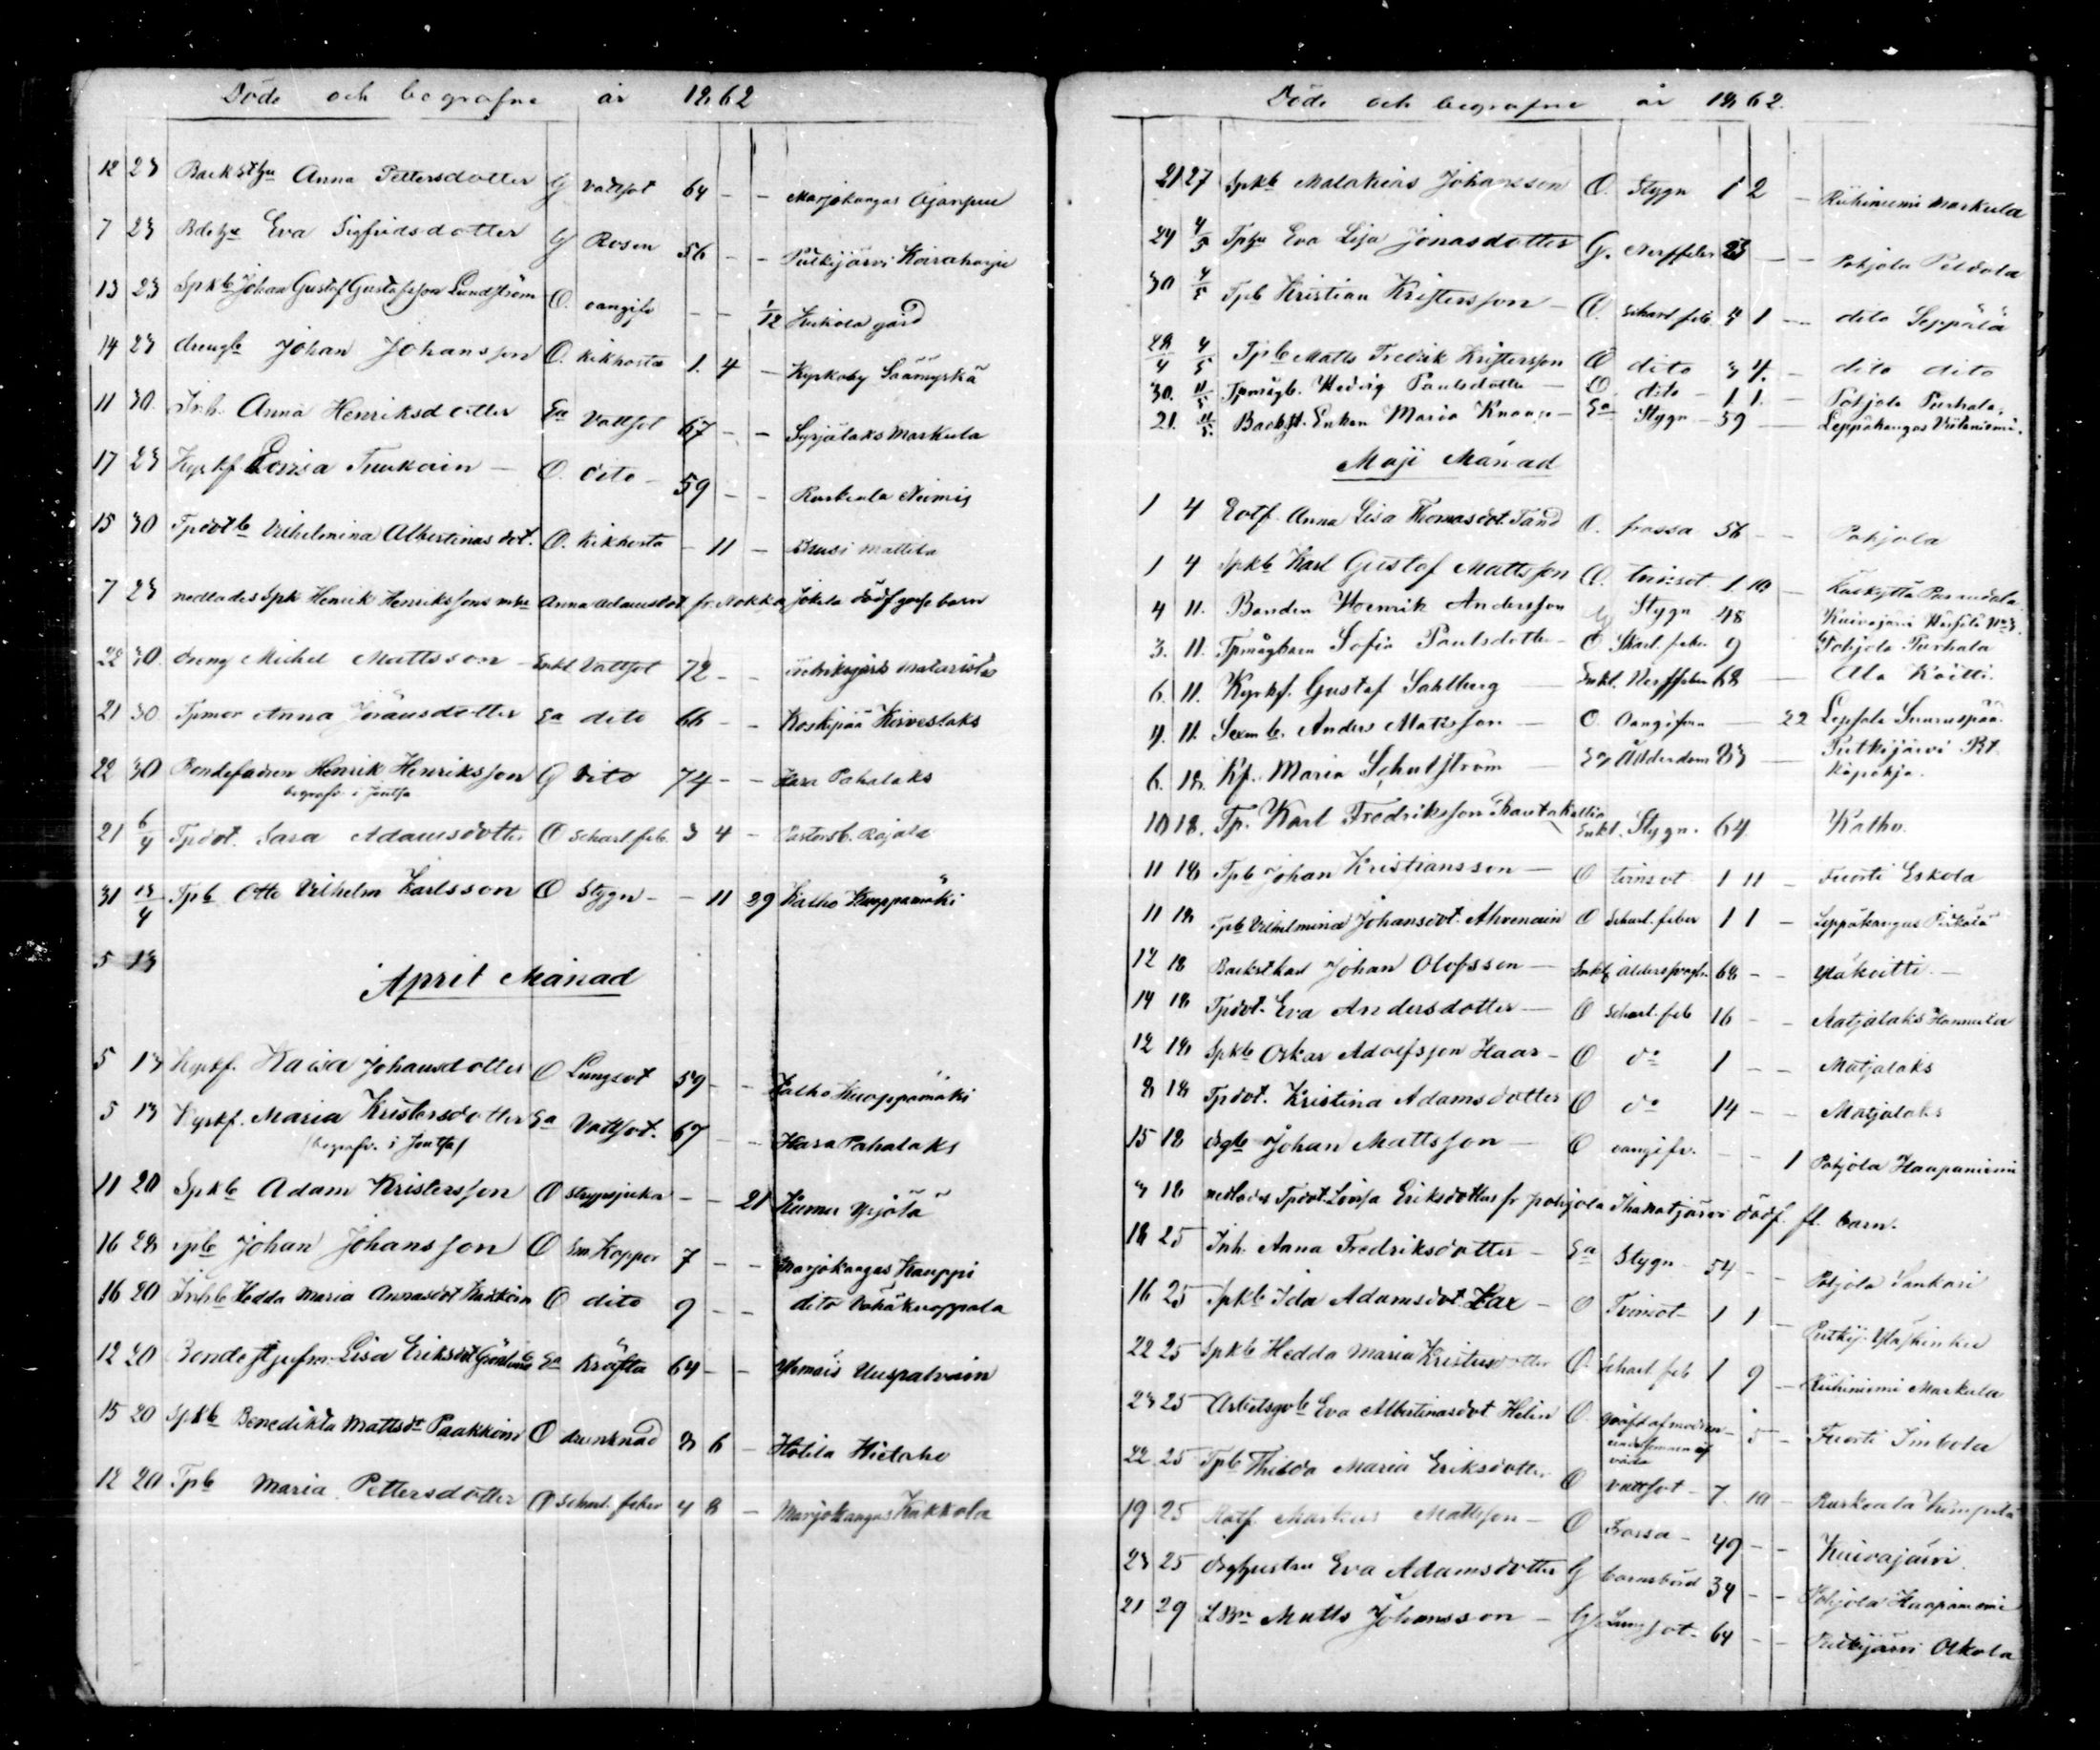 Döde och begrafne år 1862
12 23 Backsthu Anna Pettersdotter G Vattsot 64 - - Marjokangas Ojanpuu
7 23 Bdehu Eva Sigfridsdotter G Rosen 56 - - Putkijärvi Koiraharju
13 23 Spkb Johan Gustaf Gustafsson Lundström O. oangifv - - 1/12 Kukola gård
14 23 drengb Johan Johansson O. Kikhosta 1. 4 - Kyrkoby Säämyskä
11 30. Inh. Anna Henriksdotter Ea Vattsot 67 - - Syrjälaks Markula
17 23 Kyrkf Lovisa Turkain - O. dito - 59 - - Ruskeala Niemis
15 30 Tpdotb Vilhelmina Albertinasdot. O. Kikhosta - 11 - Mattila
7 23 nedlades Spk Henrik Henrikssons Anna Adamsdot fr. Nokka Jokela dödf gosse barn
22 30. dreng Michel Mattsson Enkl Vattsot 72 - -
21 30. Tpmor Anna Göransdotter Ea dito 66 - - Koskipää Kirveslaks
22 30 Bondefadren Henrik Henriksson G dito 74 - - Hara Pahalaks
begrafv. i Joutsa
21 6/4 Tpdot. Sara Adamsdotter O Scharl. feb. 3 4 - Pastorsb. Rajala
31 13/4 Tpb Otto Vilhelm Karlsson O Stygn - - 11 29 Kalho Kuoppamäki
5 13
April Månad
5 13 Kyrkf. Kaisa Johansdotter O Lungsot 59 - - Kalho Kuoppamäki
5 13 Kyrkf. Maria Kristersdotter Ea Vattsot. 67 - - Hara Pahalaks
(begrafv. i Joutsa)
11 20 Spkb Adam Kristersson O Strypsjuka - - 21 Kumu Yrjölä
16 28 Spb Johan Johansson O Sm Koppor 7 - - Marjokangas Kauppi
16 20 Inhb Hedda Maria Annasdot O dito 9 - - dito Vähäkuoppala
12 20 Bonde Lisa Eriksdot Ea Kräfta 64 - - Uuspalvain
15 20 Spkb Benedikta Mattsdr Paakkoin O drunknad 3 6 - Hotila Hietaho
12 20 Tpb Maria Pettersdotter O Scharl. feber 4 8 - Marjokangas Kakkola
Döde och begrafne år 1862.
21 27 Spkb Malakias Johansson O. Stygn 1 2 - Riihiniemi Markula
24 4/5 Tphu Eva Lisa Jonasdotter G. Nerffeber 23 - - Pohjola Peldola
30 4/5 Tpb Kristian Kristersson - O. Scharl feb. 4 1 - dito Seppälä
28/4 4/5 Tpb Matts Fredrik Kristersson O dito 3 4. - dito dito
30. 11/5 Tpmågb. Hedvig Paulsdotter - O. dito - 1 1. - Pohjola Purhala.
21. 11/5. Backst. Enkan Maria - Ea Stygn - 59 - Leppäkangas
Maji Månad
1 4 Rotf. Anna Lisa Thomasdot. Tand O. frossa 56 - - Pohjola
1 4 Spkb Karl Gustaf Mattsson O. tvinsot 1 10 -
4 11. Bonden Henrik Andersson G Stygn 48 Kuivajärvi No 3.
3. 11. Tpmågbarn Sofia Paulsdotter - O Skarl. feber 9 Pohjola Purhala
6. 11. Kyrkf. Gustaf Sahlberg - Enkl. Nerffeber 68 - Ala Koitti.
4. 11. Sexmb. Anders Matsson - O. Oangifven - 22 Lepsala Suuruspää.
6. 18. Kf. Maria Schulström - Ea Ålderdom 83 - Putkijärvi Rt.
10 18. Tp. Karl Fredriksson Rautakallio Enkl. Stygn. 64 Kalho.
11 18 Tpb Johan Kristiansson - O tvinsot 1 11 - Fuorti Eskola
11 18 Tpb Vilhelmina Johansdot. Ahvenain O Scharl. feber 1 1 - Leppäkangas
12 18 Backstkarl Johan Olofsson - Enkl. 68 - - Yläkoitti -
14 18 Tpdot. Eva Andersdotter - O Scharl. feb 16 - - Matjalaks Hannula
12 18 Spkb Oskar Adolfsson Haar - O do 1 - - Matjalaks
8 18 Tpdot. Kristina Adamsdotter O do 14 - - Matjalaks
15 18 drgb Johan Mattsson - O oangifv. - - 1 Pohjola Haapaniemi
3 18 nedlades Tpdot. Lovisa Eriksdotters fr Pohjola Ihanatjärvi dödf. fl. barn.
18 25 Inh. Anna Fredriksdotter - Ea Stygn 54 - - Pohjola Tankari
16 25 Spkb Ida Adamsdot. Lax - O Tvinsot - 1 1 - Putkij.
22 25 Spkb Hedda Maria Kristersdotter O. Scharl. feb 1 9 - Riihiniemi Markula
23 25 Arbetsgob Eva Albertinasdot Helin O. qväfd af modren - 5 - Fuorti Imbola
22 25 Tpb Thilda Maria Eriksdotter O Vattsot - 7. 10 - Ruskeala
19 25 Rotf. Markus Mattsson - O Frossa - 49 - - Kuivajärvi
23 25 drghustru Eva Adamsdotter G barnsbörd 34 - - Pohjola Haapaniemi
21 29 Matts Johansson - G Lungsot - 64 - - Putkijärvi Olkola